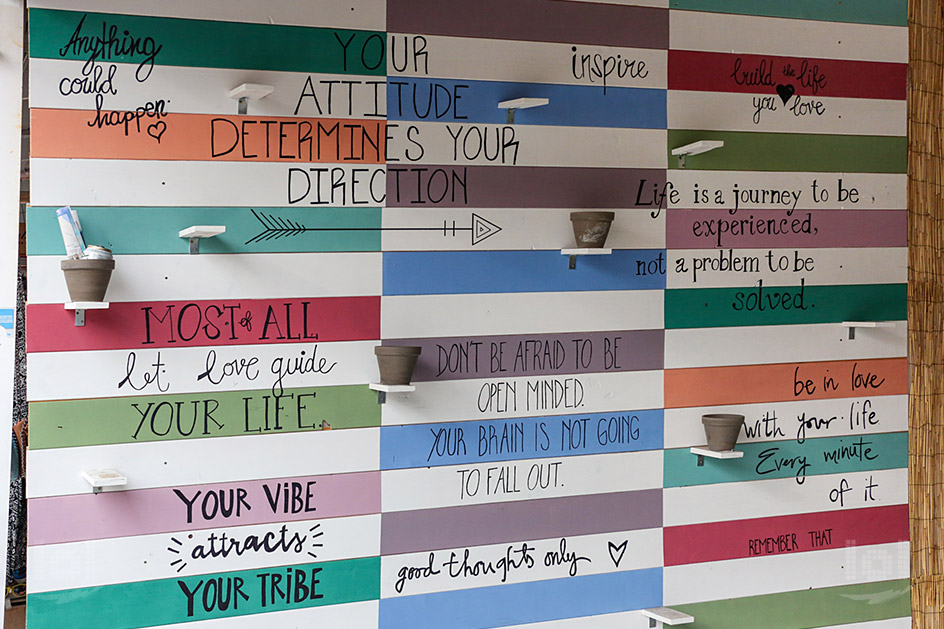 Anything
could
happen.
YOUR
ATTITUDE
DETERMINES YOUR
DIRECTION
inspire
build the life
you love
Life is a journey to be,
experienced,
not a problem to be
solved.
MOST of ALL
let love guide
YOUR LIFE.
DON'T BE AFRAID TO BE
OPEN MINDED.
YOUR BRAIN IS NOT GOING
TO FALL OUT.
be in love
with your life
Every minute
of it
YOUR VIBE
attracts
YOUR TRIBE
good thoughts only
REMEMBER THAT